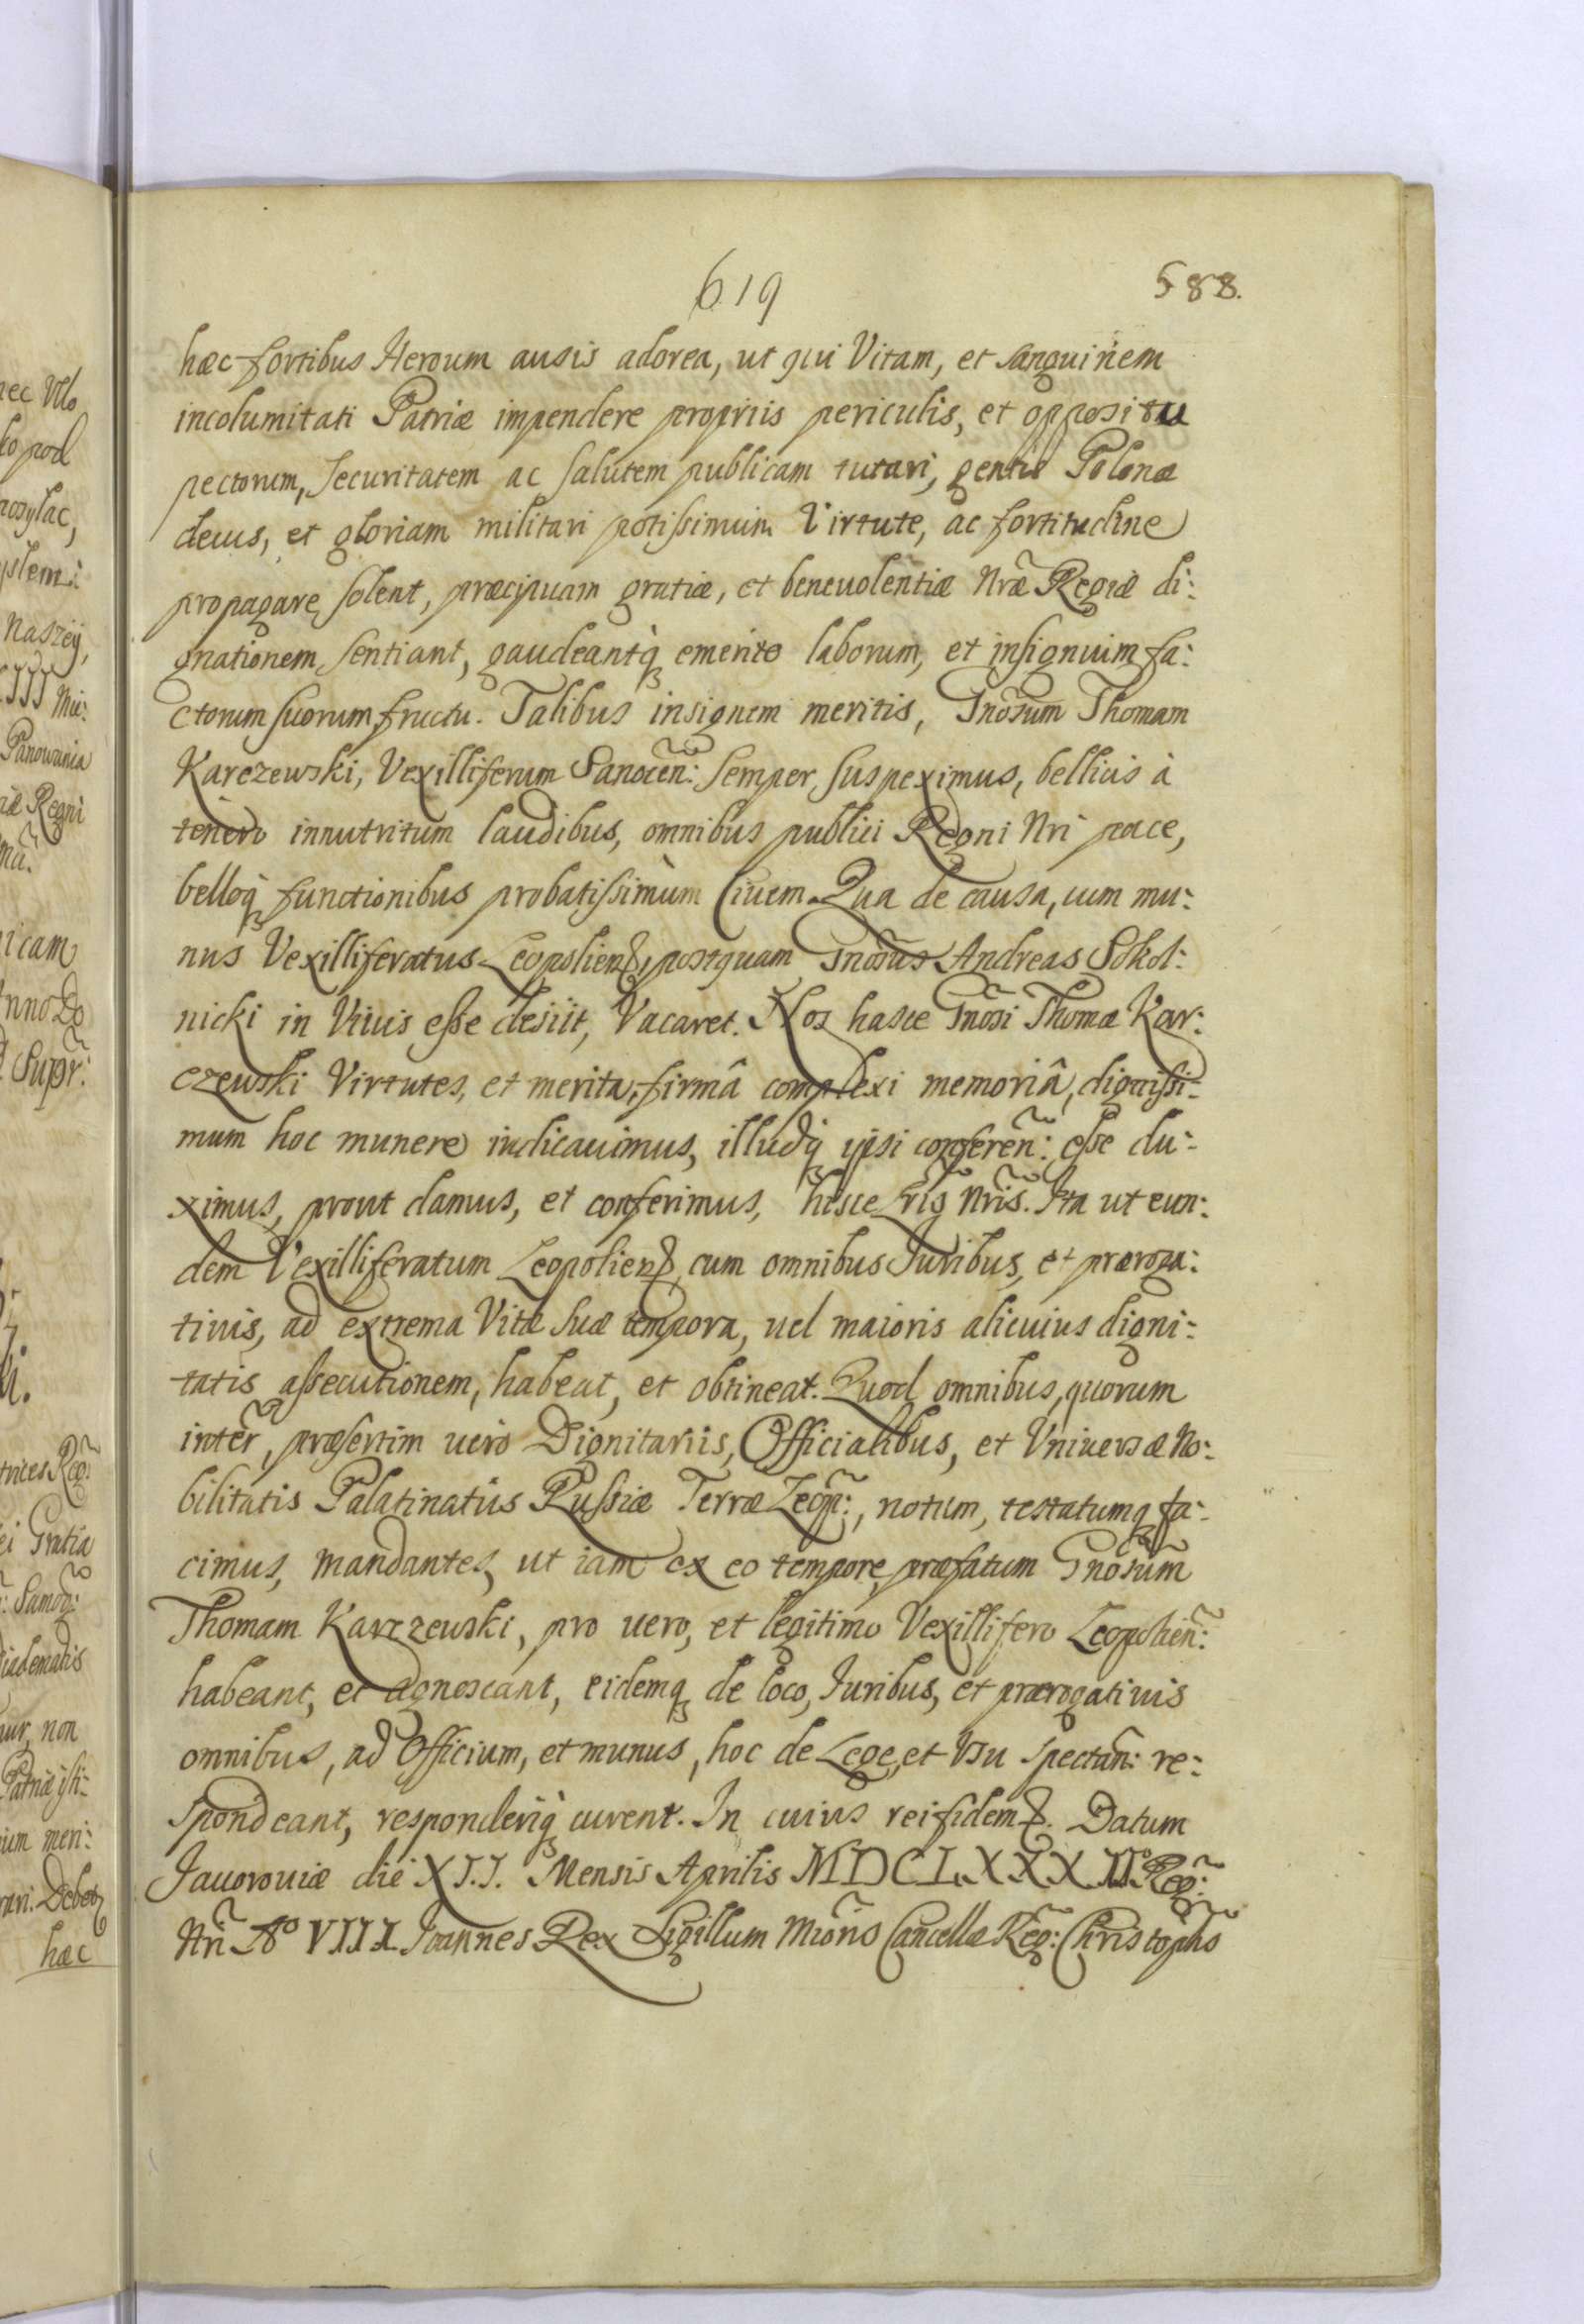 619
588.
hæc fortibus Heroum ausis adorea, ut qui Vitam, et sanguinem
incolumitati Patriæ impendere propriis periculis, et oppositu
pectorum, securitatem ac salutem publicam tutari, gentis Polonæ
decus, et gloriam militari potissimum Virtute, ac fortitudine
propagare solent, præcipuam gratiæ, et beneuolentiæ Nræ Regiæ di:
gnationem sentiant, gaudeantq̀ emerito laborum, et insignium fa:
ctorum suorum fructu. Talibus insignem meritis, Gnosum Thomam
Karczewski, Vexilliferum Sanocen: semper suspeximus, bellicis à
tenero innutritum laudibus, omnibus publici Regni Nri pace,
belloq̀ functionibus probatissimum Ciuem. Qua de causa, cum mu:
nus Vexilliferatus Leopoliens, postquam Gnosus Andreas Sokol:
nicki in Viuis esse desiit, Vacaret. Nos hasce Gnosi Thomæ Kar:
czewski Virtutes, et merita, firmâ complexi memoriâ, digniss̄i-
mum hoc munere iudicauimus, illudq̀ ipsi conferen̄: esse du:
ximus, prout damus, et conferimus, hisce Lris Nris. Ita ut eun:
dem Vexilliferatum Leopoliens, cum omnibus Iuribus, et præroga:
tiuis, ad extrema Vitæ suæ tempora, uel maioris alicuius digni:
tatis assecutionem, habeat, et obtineat. Quod omnibus, quorum
inter̃, præsertim uero Dignitariis, Officialibus, et Vniuersæ No:
bilitatis Palatinatus Russiæ Terræ Leop̃:, notum, testatumq fa:
cimus, mandantes, ut iam ex eo tempore, præfatum Gnosum
Thomam Karczewski, pro uero, et legitimo Vexillifero Leopolien̄:
habeant, et agnoscant, eidemq de loco, Iuribus, et prærogatiuis
omnibus, ad Officium, et munus, hoc de Lege, et Vsu spectan̄: re:
spondeant, responderiq̀ curent. In cuius rei fidem Datum
Jauorouiæ die XII. Mensis Aprilis MDCLXXXII. Reg̃:
Nri Aº VIII Joannes Rex Sigillum Mioris Cancellæ Reg̃: Christopho